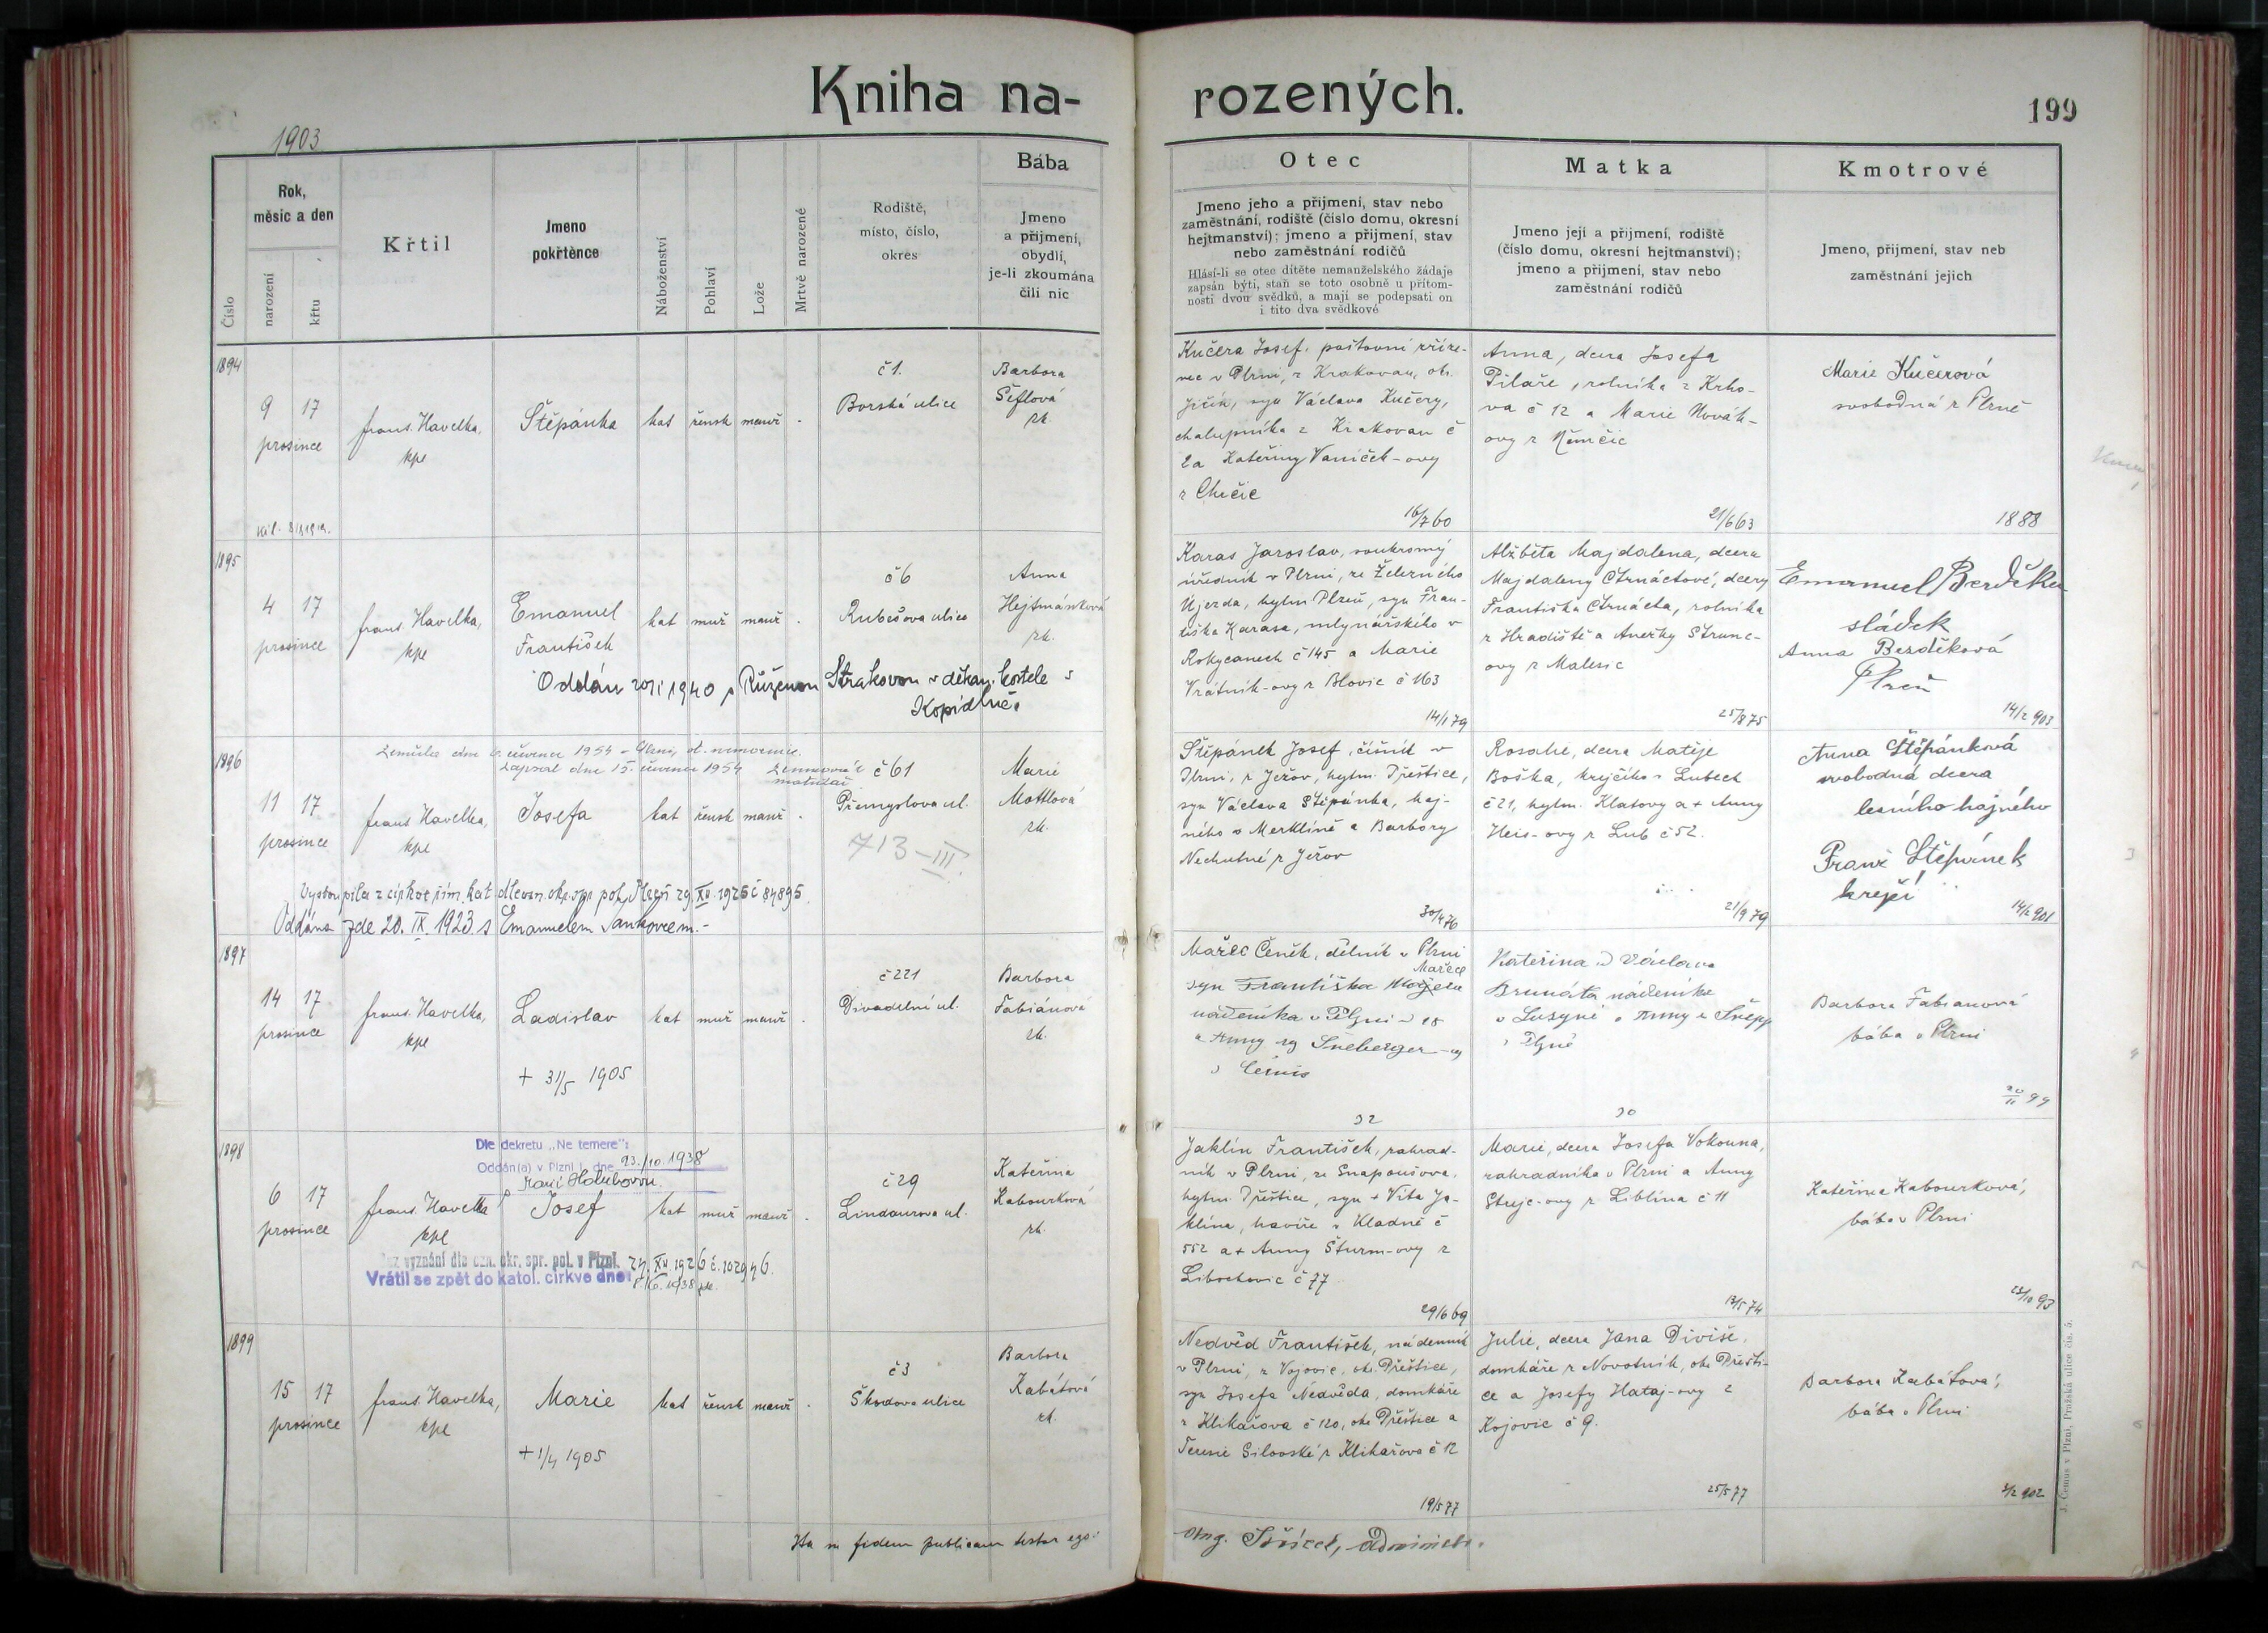 Kniha na-
rozených.
199
1903
Číslo
Rok,
měsíc a den
narození
křtu
Křtil
Jmeno
pokřtěnce
Náboženství
Pohlaví
Lože
Mrtvě narozené
Rodiště,
místo, číslo,
okres
Bába
Jmeno
a přijmení,
obydlí,
je-li zkoumána
čili nic
Otec
Jmeno jeho a přijmení, stav nebo
zaměstnání, rodiště (číslo domu, okresní
hejtmanství); jmeno a přijmení, stav
nebo zaměstnání rodičů
Hlásí-li se otec dítěte nemanželského žádaje
zapsán býti, staň se toto osobně u přítom-
nosti dvou svědků, a mají se podepsati on
i tito dva svědkové
Matka
Jmeno její a přijmení, rodiště
(číslo domu, okresní hejtmanství);
jmeno a přijmení, stav nebo
zaměstnání rodičů
Kmotrové
Jmeno, přijmení, stav neb
zaměstnání jejich
1894
9 17
prosince
frant. Havelka,
kpl
Štěpánka
kat žensk manž -
č 1.
Borská ulice
Barbora
Šeflová
zk.
Kučera Josef, poštovní zříze-
nec v Plzni, z Krakovan, ok.
Jičín, syn Václava Kučery,
chalupníka z Krakovan č
2 a Kateřiny Vaníček-ovy
z Chčic
16/7 60
Anna, dcera Josefa
Pilaře, rolníka z Krho-
va č 12 a Marie Novák-
ovy z Němčic
21/6 63
Marie Kučerová
svobodná z Plzně
1888
1895
4 17
prosince
frant. Havelka,
kpl
Emanuel
František
kat muž manž -
č 6
Rubešova ulice
Anna
Hejtmánková
zk.
Oddán 1940 s Růženou Strakovou v děkan. kostele v
Kopidlně.
Karas Jaroslav, soukromý
úředník v Plzni, ze Železného
Újezda, hytm Plzeň, syn Fran-
tiška Karasa, mlynářského v
Rokycanech č 145 a Marie
Vrátník-ovy z Blovic č 163
14/1 79
Alžběta Majdalena, dcera
Majdaleny Čtrnáctové, dcery
Františka Čtrnácta, rolníka
z Hradiště a Anežky Strunc-
ovy z Malesic
25/8 75
Emanuel Berděka
sládek
Anna Berděková
Plzeň
14/2 903
1896
Zemřela dne 6. července 1954 - Plzni, nemocnice.
Zapsal dne 15. července 1954
matrikář
11 17
prosince
frant Havelka,
kpl
Josefa
kat žensk manž -
č 61
Přemyslova ul.
713-III.
Marie
Mottlová
zk.
Vystoupila z církve řím. kat dle ozn. okr. spr pol. Plzeň 29 XII. 1925 č 84895.
Oddána zde 20. IX. 1923 s Emanuelem Jankovcem.-
Štěpánek Josef, číšník v
Plzni, z Ježov, hytm. Přeštice,
syn Václava Štěpánka, haj-
ného v Merklíně a Barbory
Nechutné z Ježov
30/4 76
Rosalie, dcera Matěje
Boška, krejčího v Lubech
č 21, hytm. Klatovy a + Anny
Heis-ovy z Lub č 52.
21/9 79
Anna Štěpánková
svobodná dcera
lesního hajného
Franz Štěpánek
krejčí
14/2 901
1897
14 17
prosince
frant. Havelka,
kpl
Ladislav
+ 31/5 1905
kat muž manž -
č 221
Divadelní ul.
Barbora
Fabiánová
zk.
Mařec Čeněk, dělník v Plzni
Mařece
syn Františka
nádeníka v Plzni
a Anny Šneberger-ovy
32
Kateřina Václava
Brunáta nádeníka
v Lužyné a Anny
z Plzně
30
Barbora Fabianová
bába v Plzni
20/11 99
1898
Dle dekretu „Ne temere":
Oddán(a) v Plzni dne 23./10. 1938
s Marií Holubovou.
6 17
prosince
frant. Havelka
kpl
Josef
kat muž manž -
č 29
Lindaurova ul.
Kateřina
Kabourková
zk.
Bez vyznání dle ozn. okr. spr. pol. v Plzni. 24. XII. 1926 č. 102946.
Vrátil se zpět do katol. církve dne: 1938
Jaklín František, zahrad-
ník v Plzni, ze Snapoušova,
hytm. Přeštice, syn + Víta Ja-
klína, havíře z Kladně č
552 a + Anny Šturm-ovy z
Libochovic č 77
29/6 69
Marie, dcera Josefa Vokouna,
zahradníka v Plzni a Anny
Strejc-ovy z Liblína č 11
13/5 74
Kateřina Kabourková,
bába v Plzni
23/10 93
1899
15 17
prosince
frant. Havelka,
kpl
Marie
+ 1/4 1905
kat žensk manž -
č 3
Škodova ulice
Barbora
Kabátová
zk.
Nedvěd František, nádenník
v Plzni, z Vojovic, ok. Přeštice,
syn Josefa Nedvěda, domkáře
z Klikařova č 120, ok. Přeštice a
Terezie Silovské z Klikařova č 12
19/5 77
Julie, dcera Jana Diviše,
domkáře z Novotník, ok. Přešti-
ce a Josefy Hataj-ovy z
Kojovic č 9.
25/5 77
Barbora Kabátová,
bába v Plzni
2/2 902
Ita in fidem publicam testor ego:
J. Čemus v Plzni, Pražská ulice čís. 5.